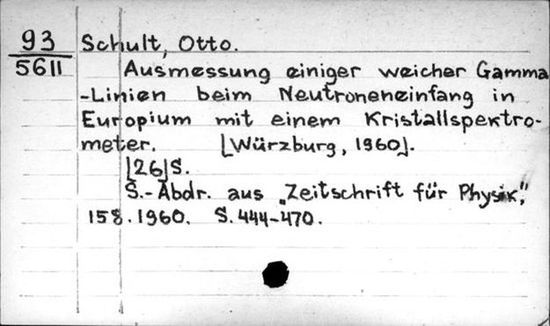 93 Schult, Otto.
5611 Ausmessung einiger weicher Gamma
-Linien beim Neutroneneinfang in
Europium mit einem Kristallspektro-
meter. [Würzburg, 1960].
[26]S.
S.-Abdr. aus „Zeitschrift für Physik",
158.1960. S.444-470.